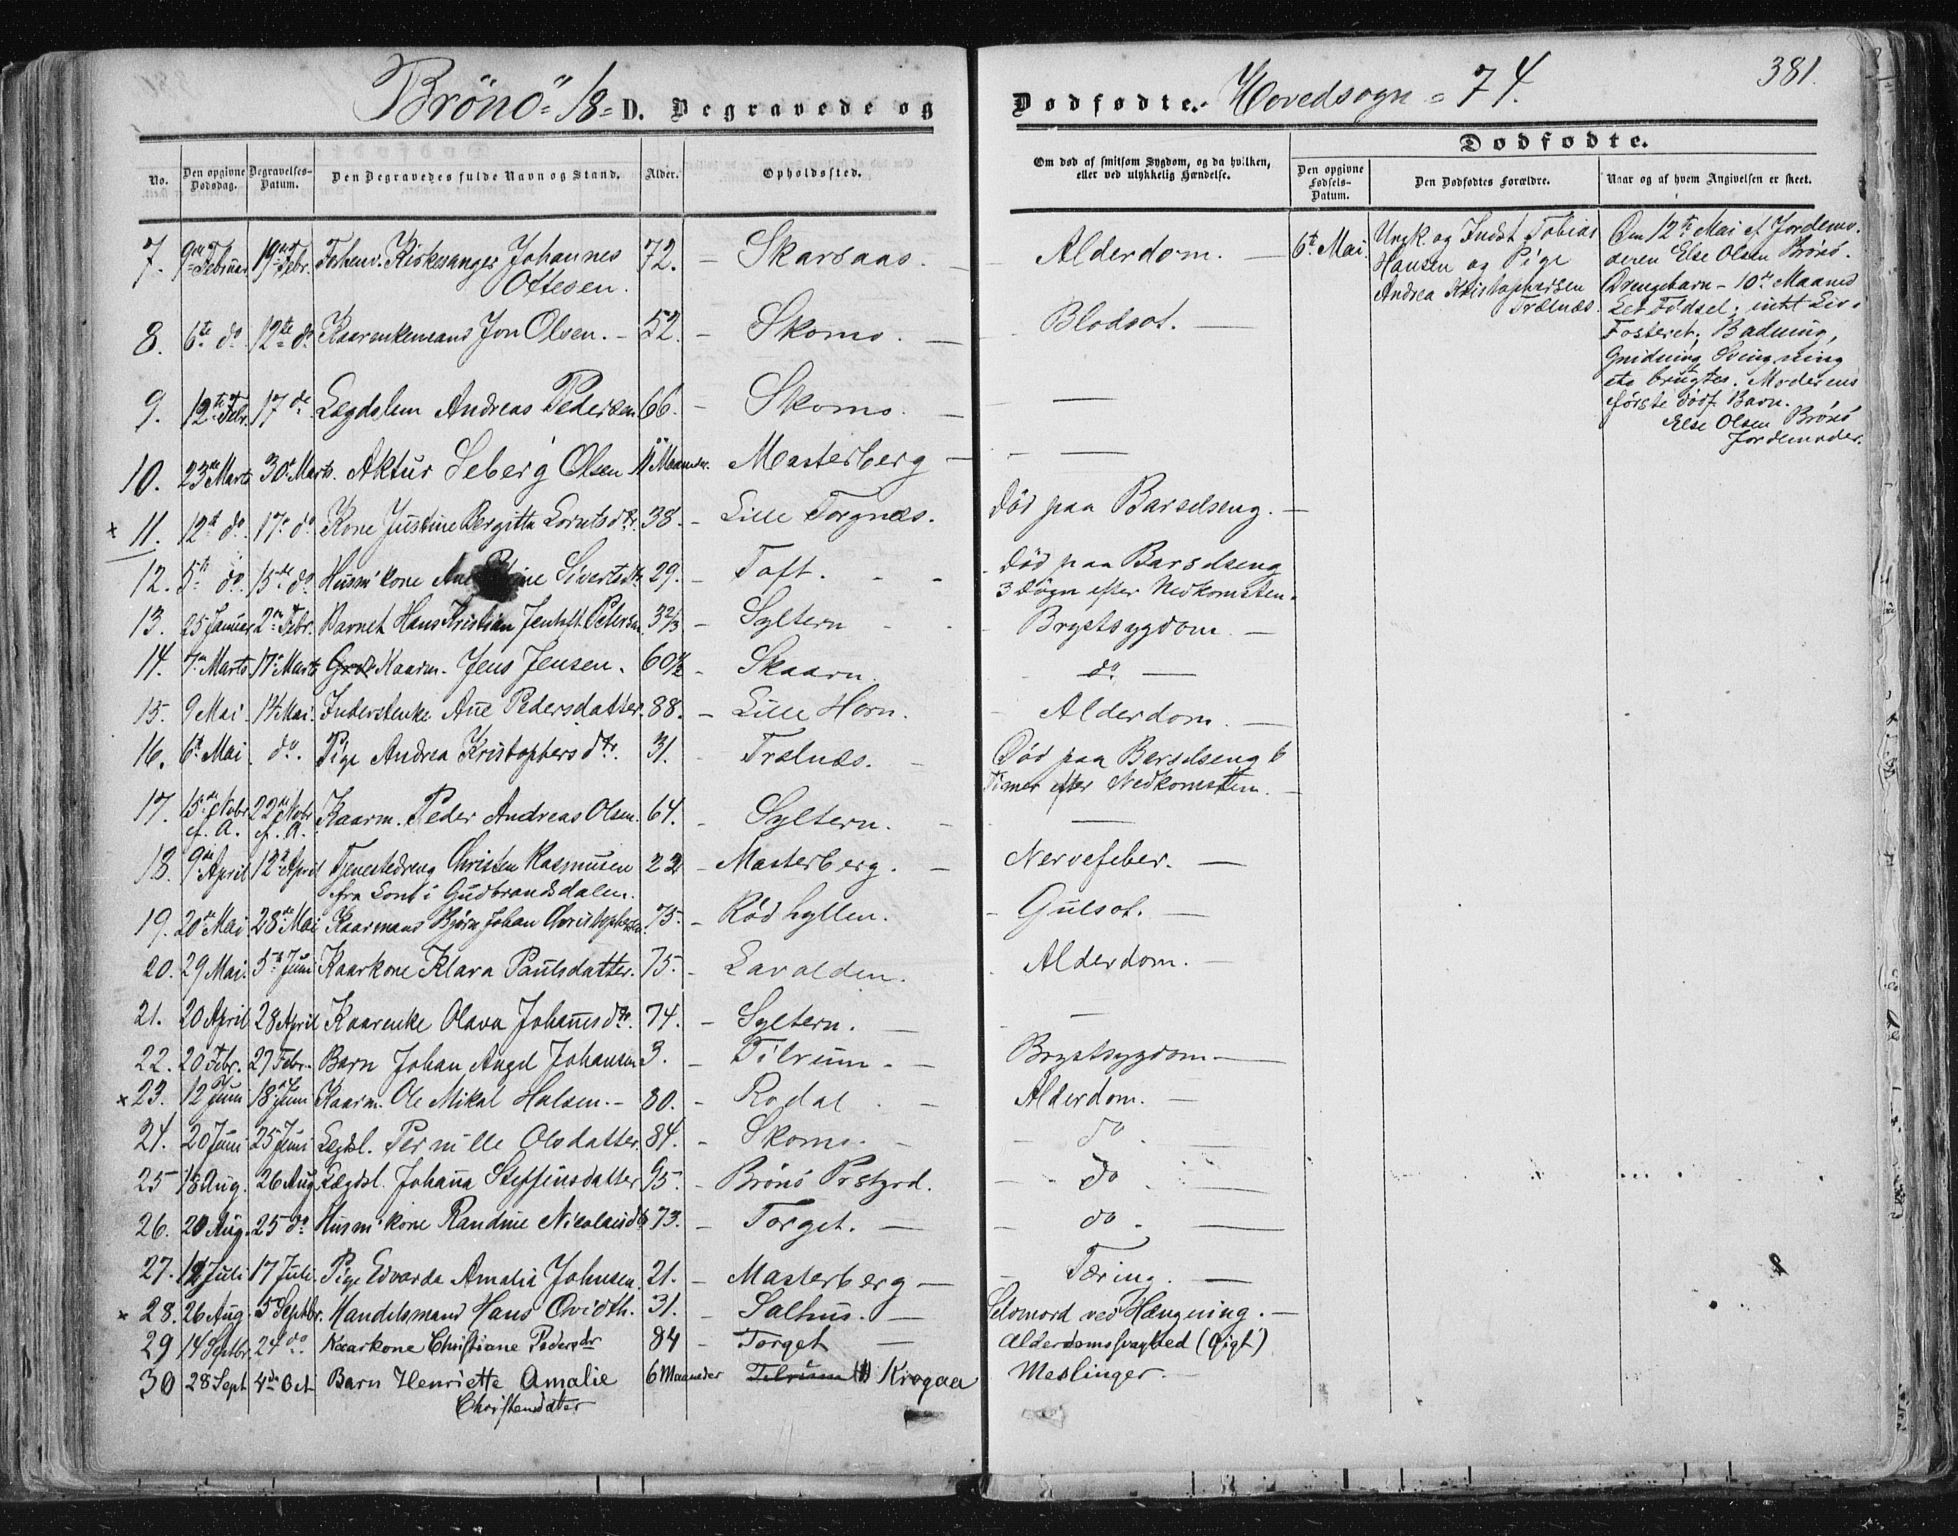 Brönö = 18 = D. Begravede og
Dødfødte. Hovedsogn = 74.
381.
No. Den opgivne Dødsdag. Begravelses-Datum. Den Begravedes fulde Navn og Stand. Alder. Opholdssted.
Om død af smitsom Sygdom, og da hvilken, eller ved ulykkelig Hændelse.
Dødfødte.
Den opgivne Fødsels-Datum. Den Dødfødtes Forældre. Naar og af hvem Angivelsen er skeet.
7. 9de Februar 19de Febr. Forhenv. Kirkesanger Johannes 72. - Skarsaas. - Alderdom. -
Ottesen.
8. 6te do 12te do Kaarenkemand Jon Olsen. - 52. - Skomo. - Blodsot. -
9. 12te Febr. 17de Lægdslem Andreas Pedersen 66. - Skomo. -
10. 23de Marts 30te Marts. Aktur Seberg Olsen 11 Maaneder. - Masterberg -
x 11. 12te do 17de do Kone Justine Bergitta Lorntsdtr. 38. - Lille Torgnæs. Død paa Barselseng. -
12. 5te do. 15de do. Husm'kone Ane Sivertsdtr. 29. - Toft. - Død paa Barselseng
3 Døgn efter Nedkomsten.
13. 25 Januar 2den Febr. Barnet Hans Kristian Petersen 3 2/3 - Syltern - Brystsygdom. -
14. 7de Marts 17de Marts Kaarm. Jens Jensen. 60 1/2 - Skaarn. do -
15. 9 Mai. 14 Mai. Inderstenke Ane Pedersdatter. 88. - Lille Horn. - Alderdom. -
16. 6te Mai. do. Pige Andrea Kristophersdtr. 31. Trælnæs. - Død paa Barselseng 6
Timer efter Nedkomsten. -
17. 15de Novbr. f. A. 22de Novbr. f. A. Kaarm. Peder Andreas Olsen. 64. - Syltern. -
18. 9de April 12te April Tjenestedreng Christen Rasmusen 22 - Masterberg. - Nervefeber. -
fra Lont i Gudbrandsdalen.
19. 20de Mai. 28de Mai Kaarmand Bjørn Johan Christophersen 75. - Rödhyllen. - Gulsot. -
20. 29 Mai. 5te Juni Kaarkone Klara Paulsdatter. 75. - Lavolden. Alderdom. -
21. 20 April. 28 April Kaarenke Olava Johansdtr. 74. - Syltern. -
22. 20 Febr. 27 Febr. Barn Johan Angel Johansen 3. - Tilrum. - Brystsygdom -
x 23. 12 Juni 18 Juni Kaarm. Ole Mikal Halsen. - 80. - Rodal. - Alderdom. -
24. 20 Juni 25 Juni Lægdsl. Pernille Olsdatter. 84. - Skomo. - do
25 18 Aug. 26 Aug. Lægdsl. Johana Steffensdatter 95. - Brönö Prstgrd. do
26. 20 Aug. 25 do Husm'kone Randine Nicolaisdtr 73. - Torget. - do.
27. 12 Juli 17 Juli. Pige Edvarda Amalia Johnsen. 21. - Masterberg - Tæring. -
x 28. 26 Aug. 5 Septbr. Handelsmand Hans Qvidth. 31. - Salhus. - Selvmord ved Hængning. -
29 14 Septbr. 24 do. Kaarkone Christiane Pedersdr 84 - Torget - Alderdomssvaghed (Gigt)
30 28 Sept 4de Oct Barn Henriette Amalie 6 Maaneder Tilrum Krogaa Meslinger. -
Christensdatter
6te Mai. Ungk. og Indst. Tobias
Hansen og Pige
Andrea Kristophersen
Trælnæs.
Den 12te Mai af Jordemo-
deren Else Olsen Brönö.
Drengebarn - 10de Maaned
Let Födsel; intet Liv i
Fosteret; Badning,
Gnidning, Svingning
etc brugtes. Moderens
første dødf. Barn.
Else Olsen Brönö
Jordemoder.